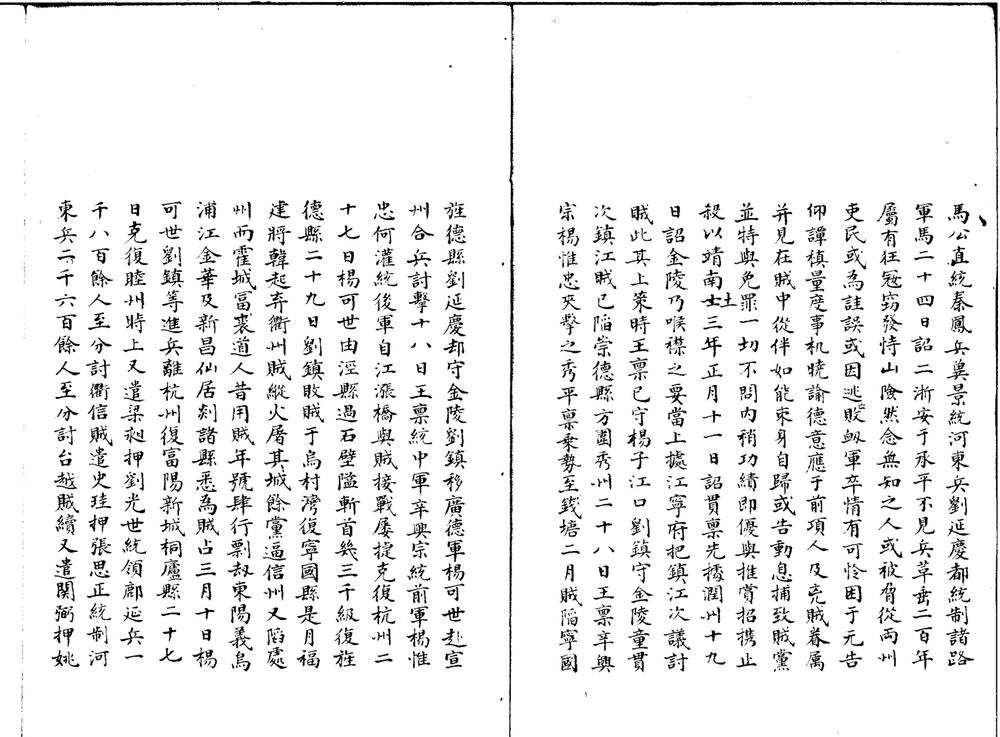 馬公直統秦鳳兵冀景統河東兵劉延慶都統制諸路
軍馬二十四日詔二浙安于承平不見兵革垂二百年
屬有狂冦竊發恃山險然念無知之人或被脅從兩州
吏民或為詿誤或因逃敗衂軍卒情有可怜困于元告
仰譚稹量度事机曉諭德意應于前項人及克賊眷属
并見在賊中從伴如能束身自歸或告動息捕致賊黨
並特與免罪一切不問内稍功績即優與推賞招携止
殺以靖南士土三年正月十一日詔貫禀先據潤州十九
日詔金陵乃喉襟之要當上據江寧府把鎮江次議討
賊此其上策時王禀已守楊子江口劉鎮守金陵童貫
次鎮江賊已陥崇德縣方圍秀州二十八日王禀辛興
宗楊惟忠夾擊之秀平禀乗勢至錢塘二月賊陥寧國
旌德縣劉延慶却守金陵劉鎮移廣德軍楊可世赴宣
州合兵討擊十八日王禀統中軍辛興宗統前軍楊惟
忠何灌統後軍自江漲橋與賊接戰屡捷克復杭州二
十七日楊可世由涇縣過石壁隘斬首幾三千級復旌
德縣二十九日劉鎮敗賊于烏村灣復寧國縣是月福
建將韓起弃衢州賊縱火屠其城餘黨逼信州又陥處
州而霍城冨裘道人昔用賊年號肆行剽刼東陽義烏
浦江金華及新昌仙居剡諸縣悉為賊占三月十日楊
可世劉鎮等進兵離杭州復富陽新城桐廬縣二十七
日克復睦州時上又遣梁昶押劉光世統領鄜延兵一
千八百餘人至分討衢信賊遣史珪押張思正統制河
東兵二千六百餘人至分討台越賊續又遣関弼押姚